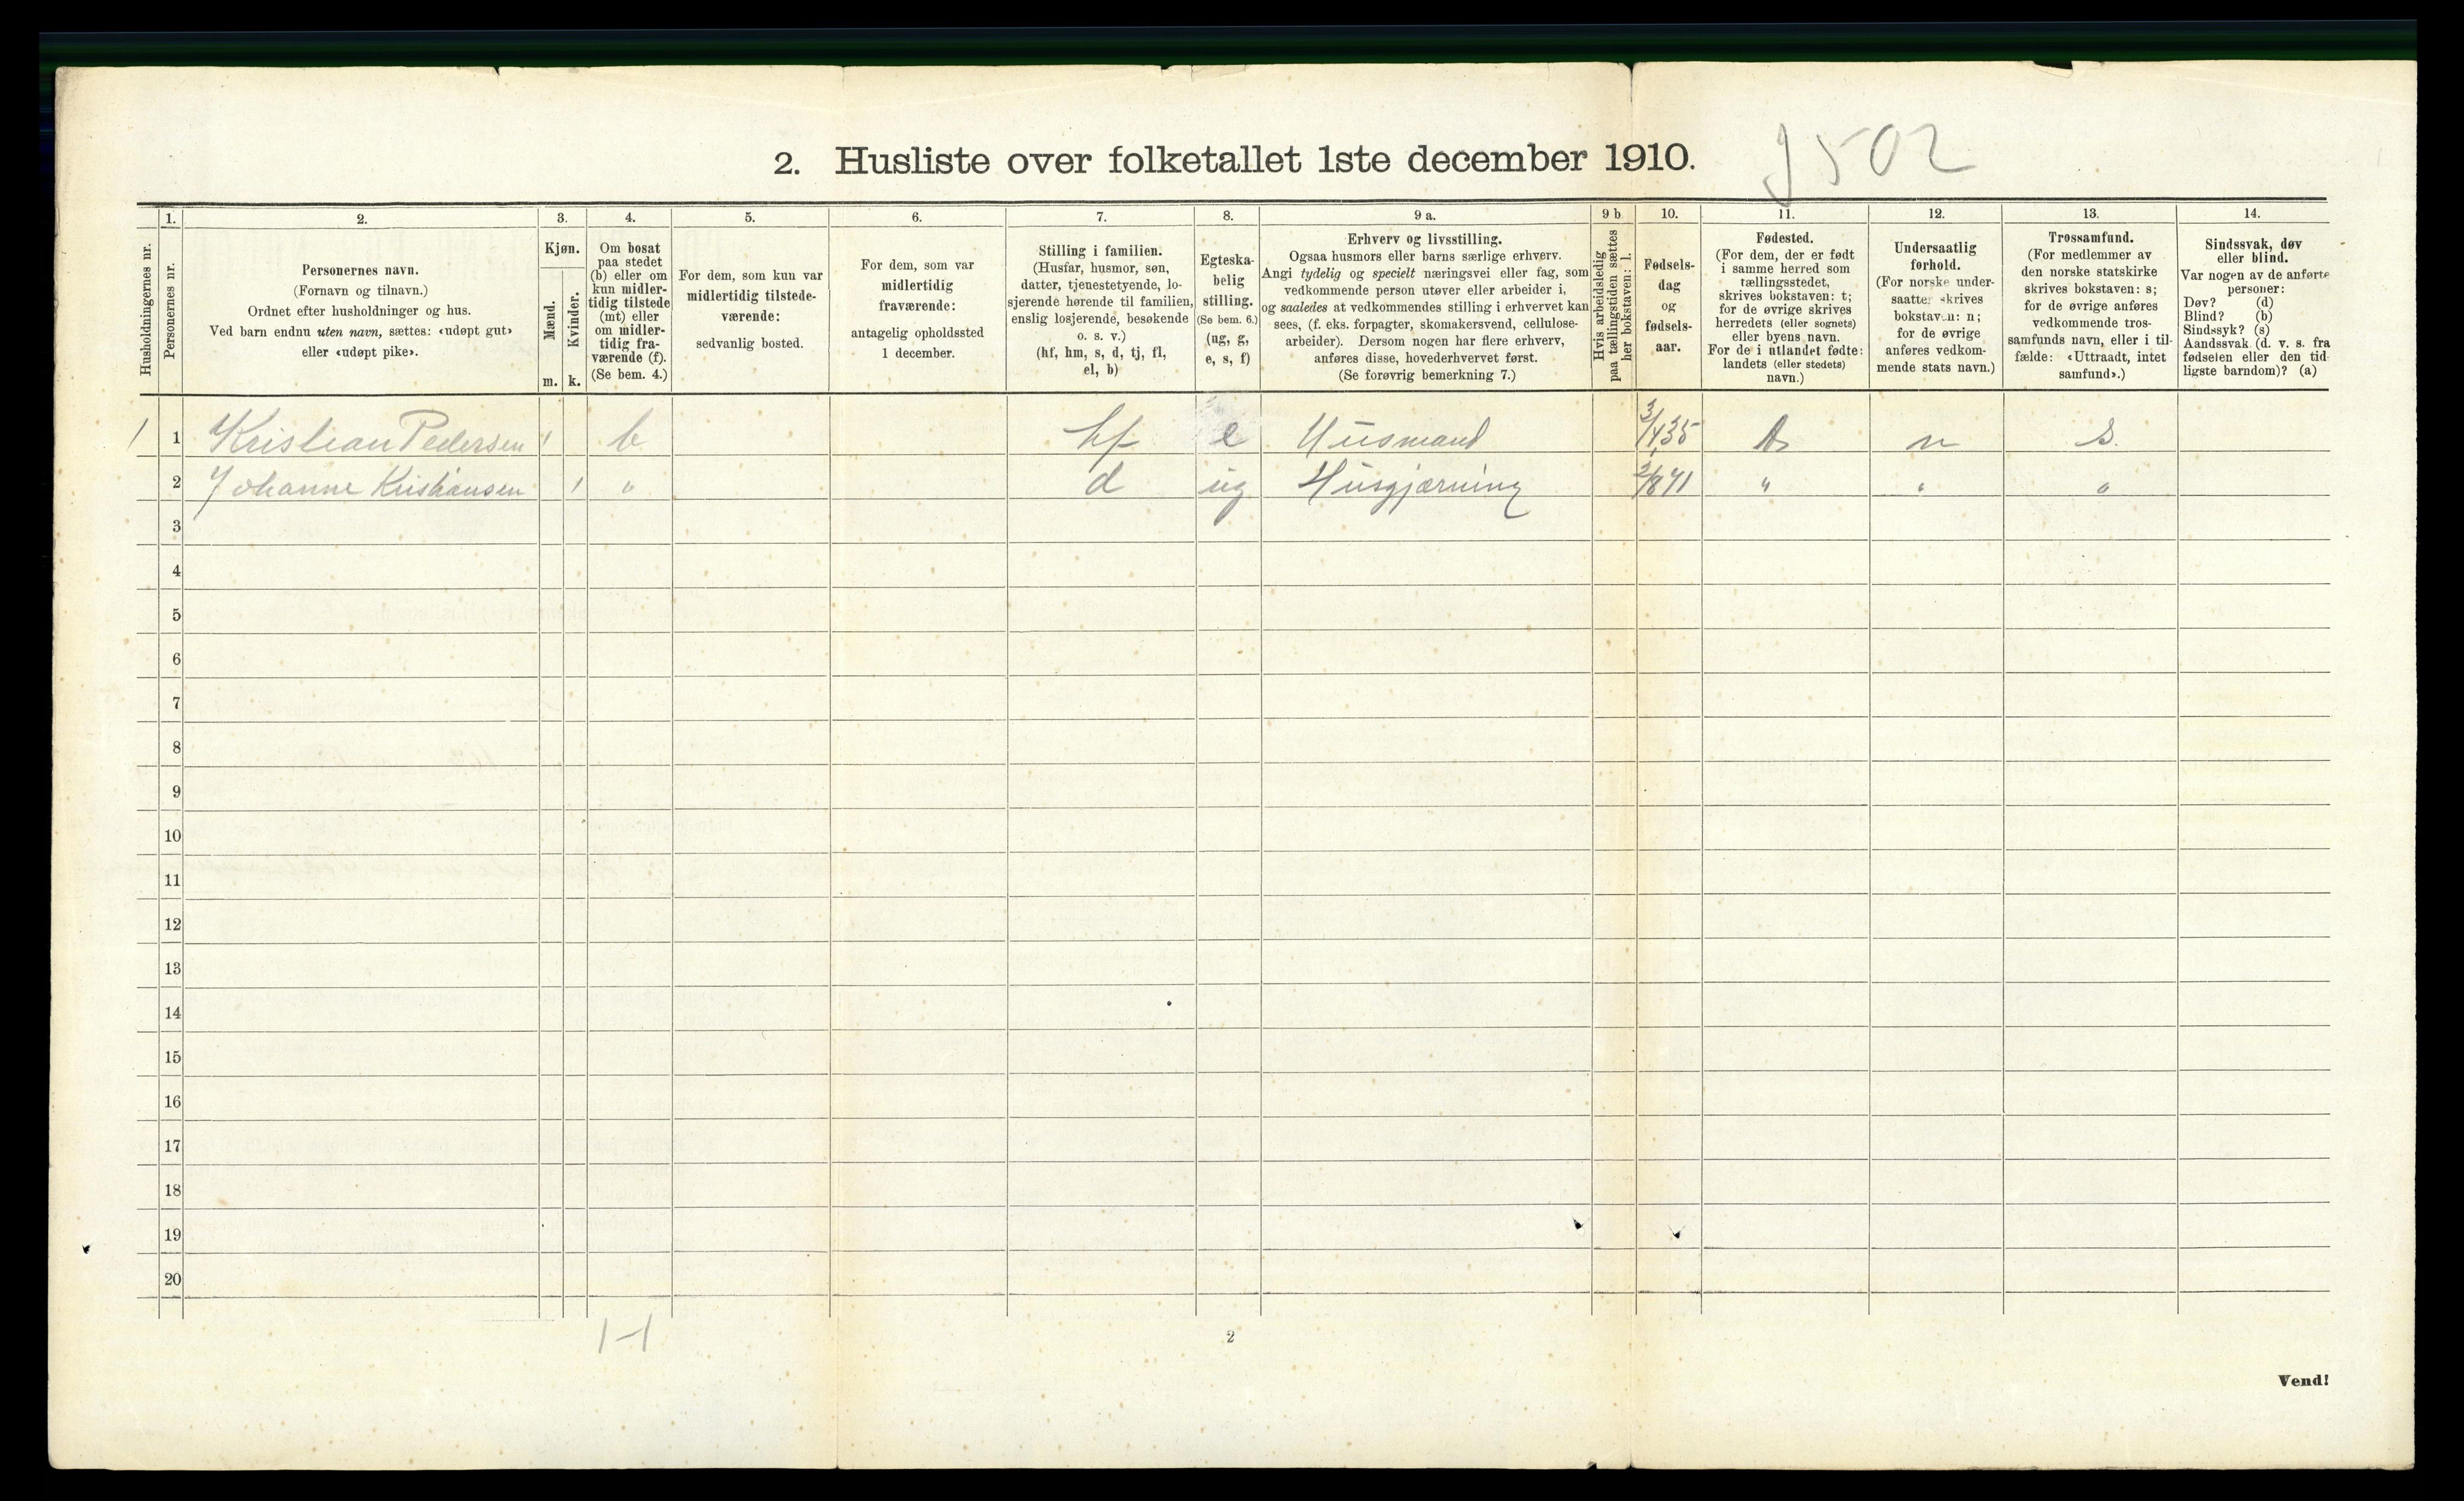 2. Husliste over folketallet 1ste december 1910.
1. 2. 3. 4. 5. 6. 7. 8. 9 a. 9 b 10. 11. 12. 13. 14.
Husholdningernes nr.
Personernes nr.
Personernes navn.
(Fornavn og tilnavn.)
Ordnet efter husholdninger og hus.
Ved barn endnu uten navn, sættes: «udøpt gut»
eller «udøpt pike».
Kjøn.
Mænd.
Kvinder.
m. k.
Om bosat
paa stedet
(b) eller om
kun midler-
tidig tilstede
(mt) eller
om midler-
tidig fra-
værende (f).
(Se bem. 4.)
For dem, som kun var
midlertidig tilstede-
værende:
sedvanlig bosted.
For dem, som var
midlertidig
fraværende:
antagelig opholdssted
1 december.
Stilling i familien.
(Husfar, husmor, søn,
datter, tjenestetyende, lo-
sjerende hørende til familien,
enslig losjerende, besøkende
o. s. v.)
(hf, hm, s, d, tj, fl,
el, b)
Egteska-
belig
stilling.
(Se bem. 6.)
(ug, g,
e, s, f)
Erhverv og livsstilling.
Ogsaa husmors eller barns særlige erhverv.
Angi tydelig og specielt næringsvei eller fag, som
vedkommende person utøver eller arbeider i,
og saaledes at vedkommendes stilling i erhvervet kan
sees, (f. eks. forpagter, skomakersvend, cellulose-
arbeider). Dersom nogen har flere erhverv,
anføres disse, hovederhvervet først.
(Se forøvrig bemerkning 7.)
Hvis arbeidsledig
paa tællingstiden sættes
her bokstaven: l.
Fødsels-
dag
og
fødsels-
aar.
Fødested.
(For dem, der er født
i samme herred som
tællingsstedet,
skrives bokstaven: t;
for de øvrige skrives
herredets (eller sognets)
eller byens navn.
For de i utlandet fødte:
landets (eller stedets)
navn.)
Undersaatlig
forhold.
(For norske under-
saatter skrives
bokstaven: n;
for de øvrige
anføres vedkom-
mende stats navn.)
Trossamfund.
(For medlemmer av
den norske statskirke
skrives bokstaven: s;
for de øvrige anføres
vedkommende tros-
samfunds navn, eller i til-
fælde: «Uttraadt, intet
samfund».)
Sindssvak, døv
eller blind.
Var nogen av de anførte
personer:
Døv? (d)
Blind? (b)
Sindssyk? (s)
Aandssvak (d. v. s. fra
fødselen eller den tid-
ligste barndom)? (a)
1 1 Kristian Pedersen 1 b hf e Husmand 3/4 35 t n s.
2 Johanne Kristiansen 1 " d ug Husgjærning 2/8 71 " " "
3
4
5
6
7
8
9
10
11
12
13
14
15
16
17
18
19
20
1-1
2
Vend!